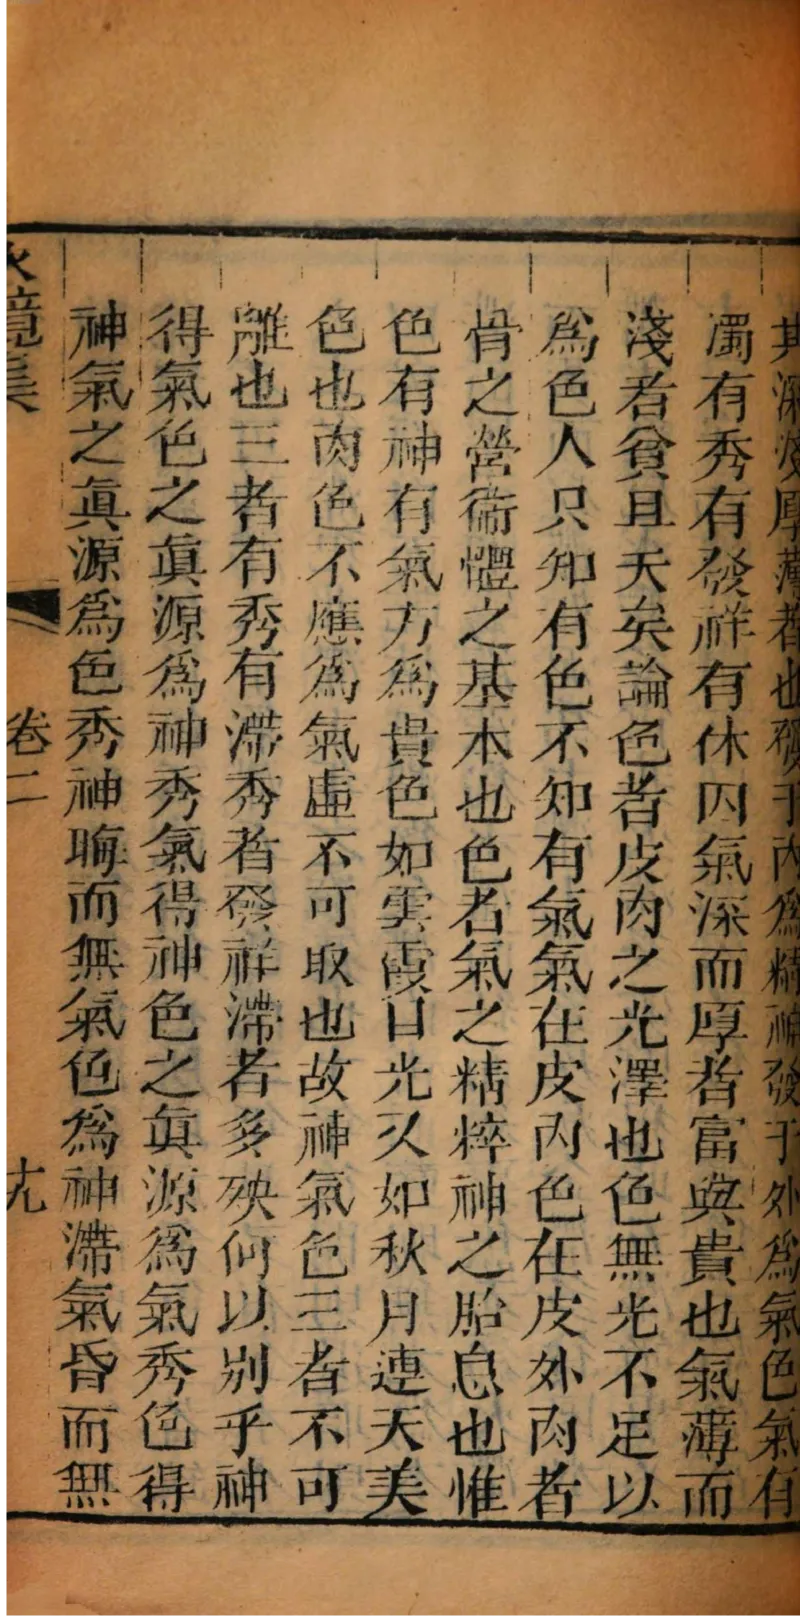 其深淺厚薄者也發于內爲精神發于外爲氣色氣有
濁有秀有發祥有休囚氣深而厚者富與貴也氣薄而
淺者貧且夭矣論色者皮肉之光澤也色無光不足以
爲色人只知有色不知有氣氣在皮內色在皮外肉者
骨之營衞體之基本也色者氣之精粹神之胎息也惟
色有神有氣方爲貴色如雲霞日光又如秋月連天美
色也肉色不應爲氣虛不可取也故神氣色三者不可
離也三者有秀有滯秀者發祥滯者多殃何以別乎神
得氣色之眞源爲神秀氣得神色之眞源爲氣秀色得
神氣之眞源爲色秀神晦而無氣色爲神滯氣昏而無
鏡集
卷二
十九